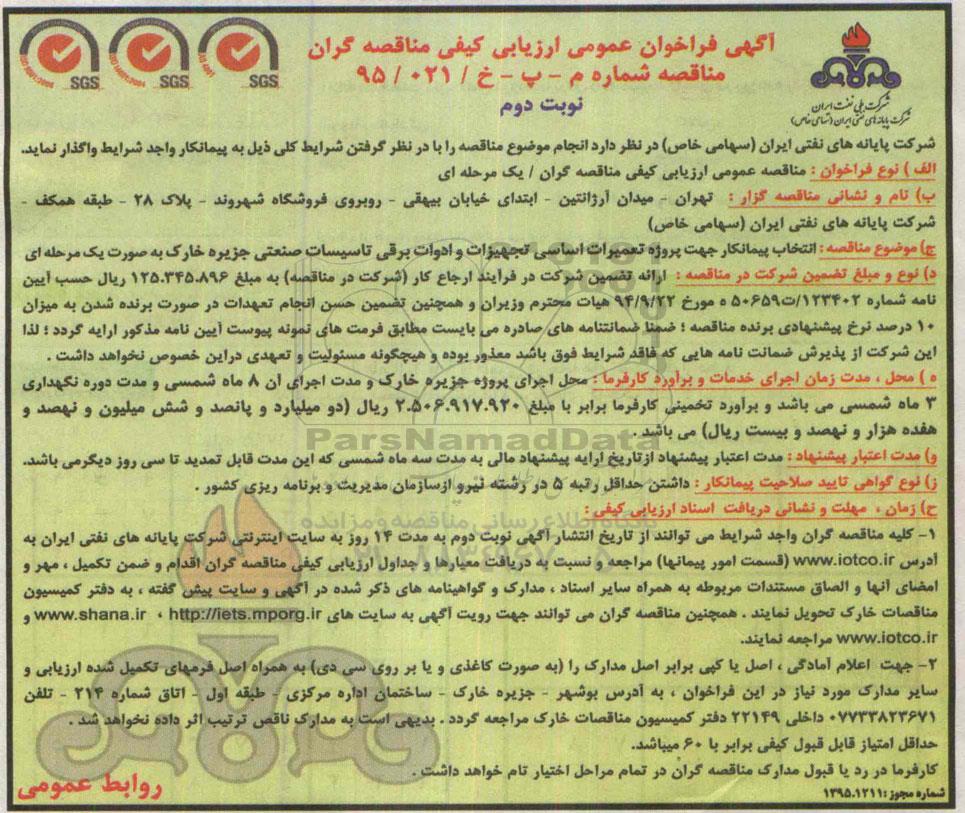 آگهی فراخوان عمومی ارزیابی کیفی مناقصه گران
مناقصه شماره م - پ - خ / ۰۲۱ / ۹۵
نوبت دوم
SGS
SGS
SGS
شرکت ملی نفت ایران
شرکت پایانه های نفتی ایران (سهامی خاص)
شرکت پایانه های نفتی ایران (سهامی خاص) در نظر دارد انجام موضوع مناقصه را با در نظر گرفتن شرایط کلی ذیل به پیمانکار واجد شرایط واگذار نماید.
الف ) نوع فراخوان : مناقصه عمومی ارزیابی کیفی مناقصه گران / یک مرحله ای
ب) نام و نشانی مناقصه گزار : تهران - میدان آرژانتین - ابتدای خیابان بیهقی - روبروی فروشگاه شهروند - پلاک ۲۸ - طبقه همکف -
شرکت پایانه های نفتی ایران (سهامی خاص)
ج) موضوع مناقصه : انتخاب پیمانکار جهت پروژه تعمیرات اساسی تجهیزات و ادوات برقی تاسیسات صنعتی جزیره خارک به صورت یک مرحله ای
د) نوع و مبلغ تضمین شرکت در مناقصه : ارائه تضمین شرکت در فرآیند ارجاع کار (شرکت در مناقصه) به مبلغ ۱۲۵.۳۴۵.۸۹۶ ریال حسب آیین
نامه شماره ۱۲۳۴۰۲/ت۵۰۶۵۹ ه مورخ ۹۴/۹/۲۲ هیات محترم وزیران و همچنین تضمین حسن انجام تعهدات در صورت برنده شدن به میزان
۱۰ درصد نرخ پیشنهادی برنده مناقصه ؛ ضمنا ضمانتنامه های صادره می بایست مطابق فرمت های نمونه پیوست آیین نامه مذکور ارایه گردد ؛ لذا
این شرکت از پذیرش ضمانت نامه هایی که فاقد شرایط فوق باشد معذور بوده و هیچگونه مسئولیت و تعهدی دراین خصوص نخواهد داشت .
ه ) محل ، مدت زمان اجرای خدمات و برآورد کارفرما : محل اجرای پروژه جزیره خارک و مدت اجرای آن ۸ ماه شمسی و مدت دوره نگهداری
۳ ماه شمسی می باشد و برآورد تخمینی کارفرما برابر با مبلغ ۲.۵۰۶.۹۱۷.۹۲۰ ریال (دو میلیارد و پانصد و شش میلیون و نهصد و
هفده هزار و نهصد و بیست ریال) می باشد .
ParsNamadData
و) مدت اعتبار پیشنهاد : مدت اعتبار پیشنهاد ازتاریخ ارایه پیشنهاد مالی به مدت سه ماه شمسی که این مدت قابل تمدید تا سی روز دیگرمی باشد.
ز) نوع گواهی تایید صلاحیت پیمانکار : داشتن حداقل رتبه ۵ در رشته نیرو ازسازمان مدیریت و برنامه ریزی کشور .
ح) زمان ، مهلت و نشانی دریافت اسناد ارزیابی کیفی :
پایگاه اطلاع رسانی مناقصه و مزایده
۱- کلیه مناقصه گران واجد شرایط می توانند از تاریخ انتشار آگهی نوبت دوم به مدت ۱۴ روز به سایت اینترنتی شرکت پایانه های نفتی ایران به
آدرس www.iotco.ir (قسمت امور پیمانها) مراجعه و نسبت به دریافت معیارها و جداول ارزیابی کیفی مناقصه گران اقدام و ضمن تکمیل ، مهر و
امضای آنها و الصاق مستندات مربوطه به همراه سایر اسناد ، مدارک و گواهینامه های ذکر شده در آگهی و سایت پیش گفته ، به دفتر کمیسیون
مناقصات خارک تحویل نمایند . همچنین مناقصه گران می توانند جهت رویت آگهی به سایت های http://iets.mporg.ir ، www.shana.ir و
www.iotco.ir مراجعه نمایند.
۲- جهت اعلام آمادگی ، اصل یا کپی برابر اصل مدارک را (به صورت کاغذی و یا بر روی سی دی) به همراه اصل فرمهای تکمیل شده ارزیابی و
سایر مدارک مورد نیاز در این فراخوان ، به آدرس بوشهر - جزیره خارک - ساختمان اداره مرکزی - طبقه اول - اتاق شماره ۲۱۴ - تلفن
۰۷۷۳۳۸۲۳۶۷۱ داخلی ۲۲۱۴۹ دفتر کمیسیون مناقصات خارک مراجعه گردد . بدیهی است به مدارک ناقص ترتیب اثر داده نخواهد شد .
حداقل امتیاز قابل قبول کیفی برابر با ۶۰ میباشد.
کارفرما در رد یا قبول مدارک مناقصه گران در تمام مراحل اختیار تام خواهد داشت .
شماره مجوز :۱۳۹۵.۱۲۱۱
روابط عمومی